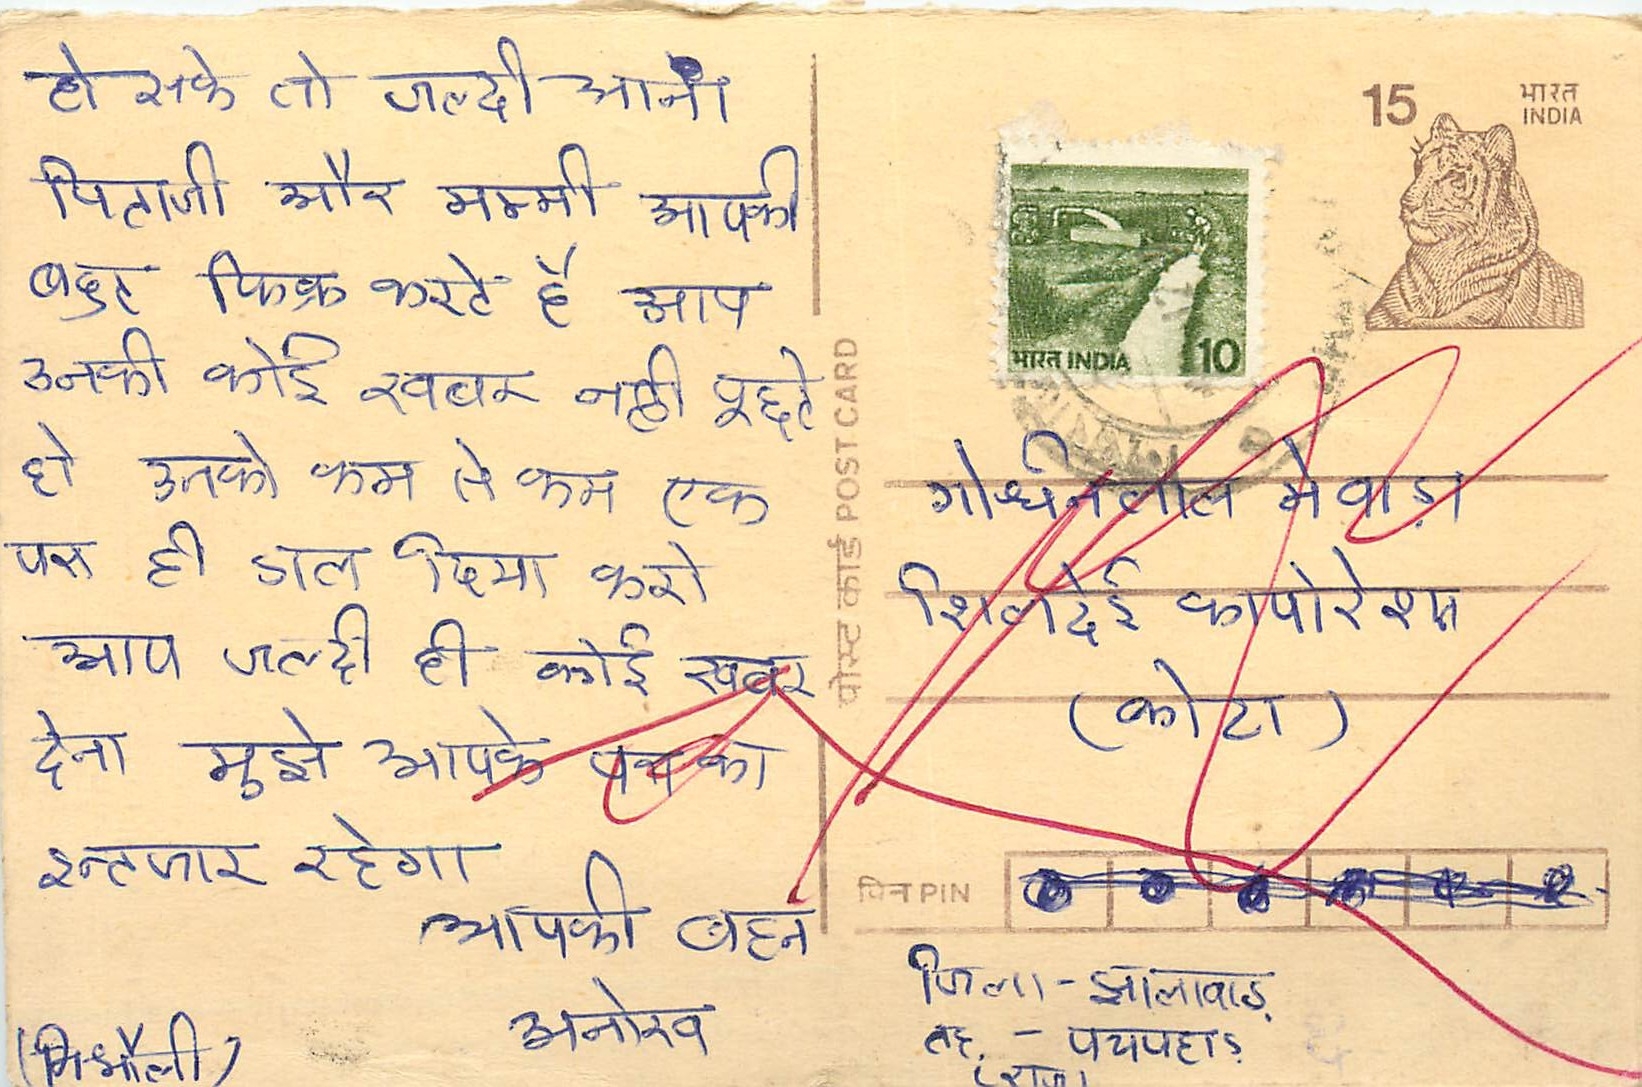 हो सके तो जल्दी आना
पिताजी और मम्मी आपकी
बहुत फिक्र करते है आप
उनकी कोई खबर नही पूछते
हो उनको कम से कम एक
पत्र ही डाल दिया करो
आप जल्दी ही कोई खबर
देना मुझे आपके पत्र का
इन्तजार रहेगा
आपकी बहन
अनोख
(मिश्रौली)
पोस्ट कार्ड POST CARD
15 भारत
INDIA
भारत INDIA 10
मेवाड़ा
कापोरेशन
(कोटा)
पिन PIN
जिला - झालावाड़
तह. - पचपहाड़
(राज)